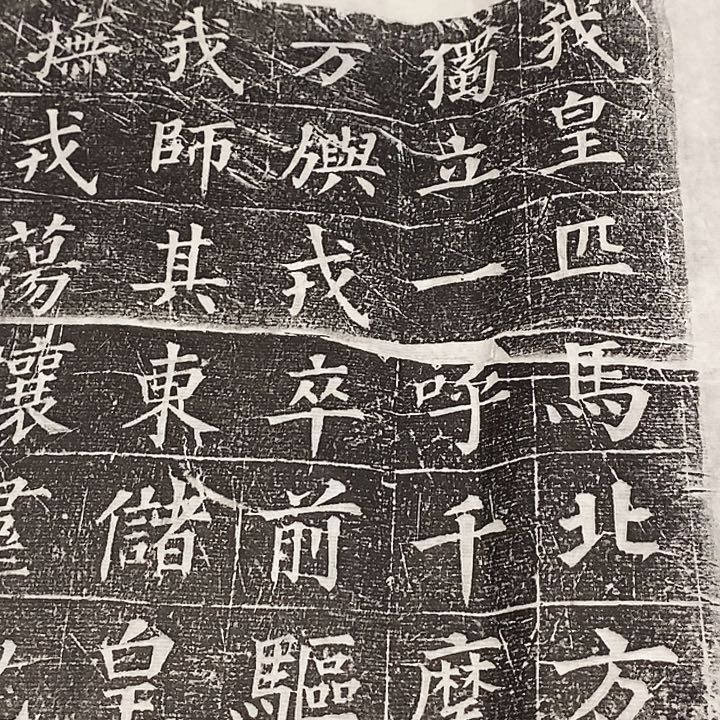 我皇匹馬北方
獨立一呼千麾
万旟戎卒前驅
我師其東儲皇
撫戎蕩攘